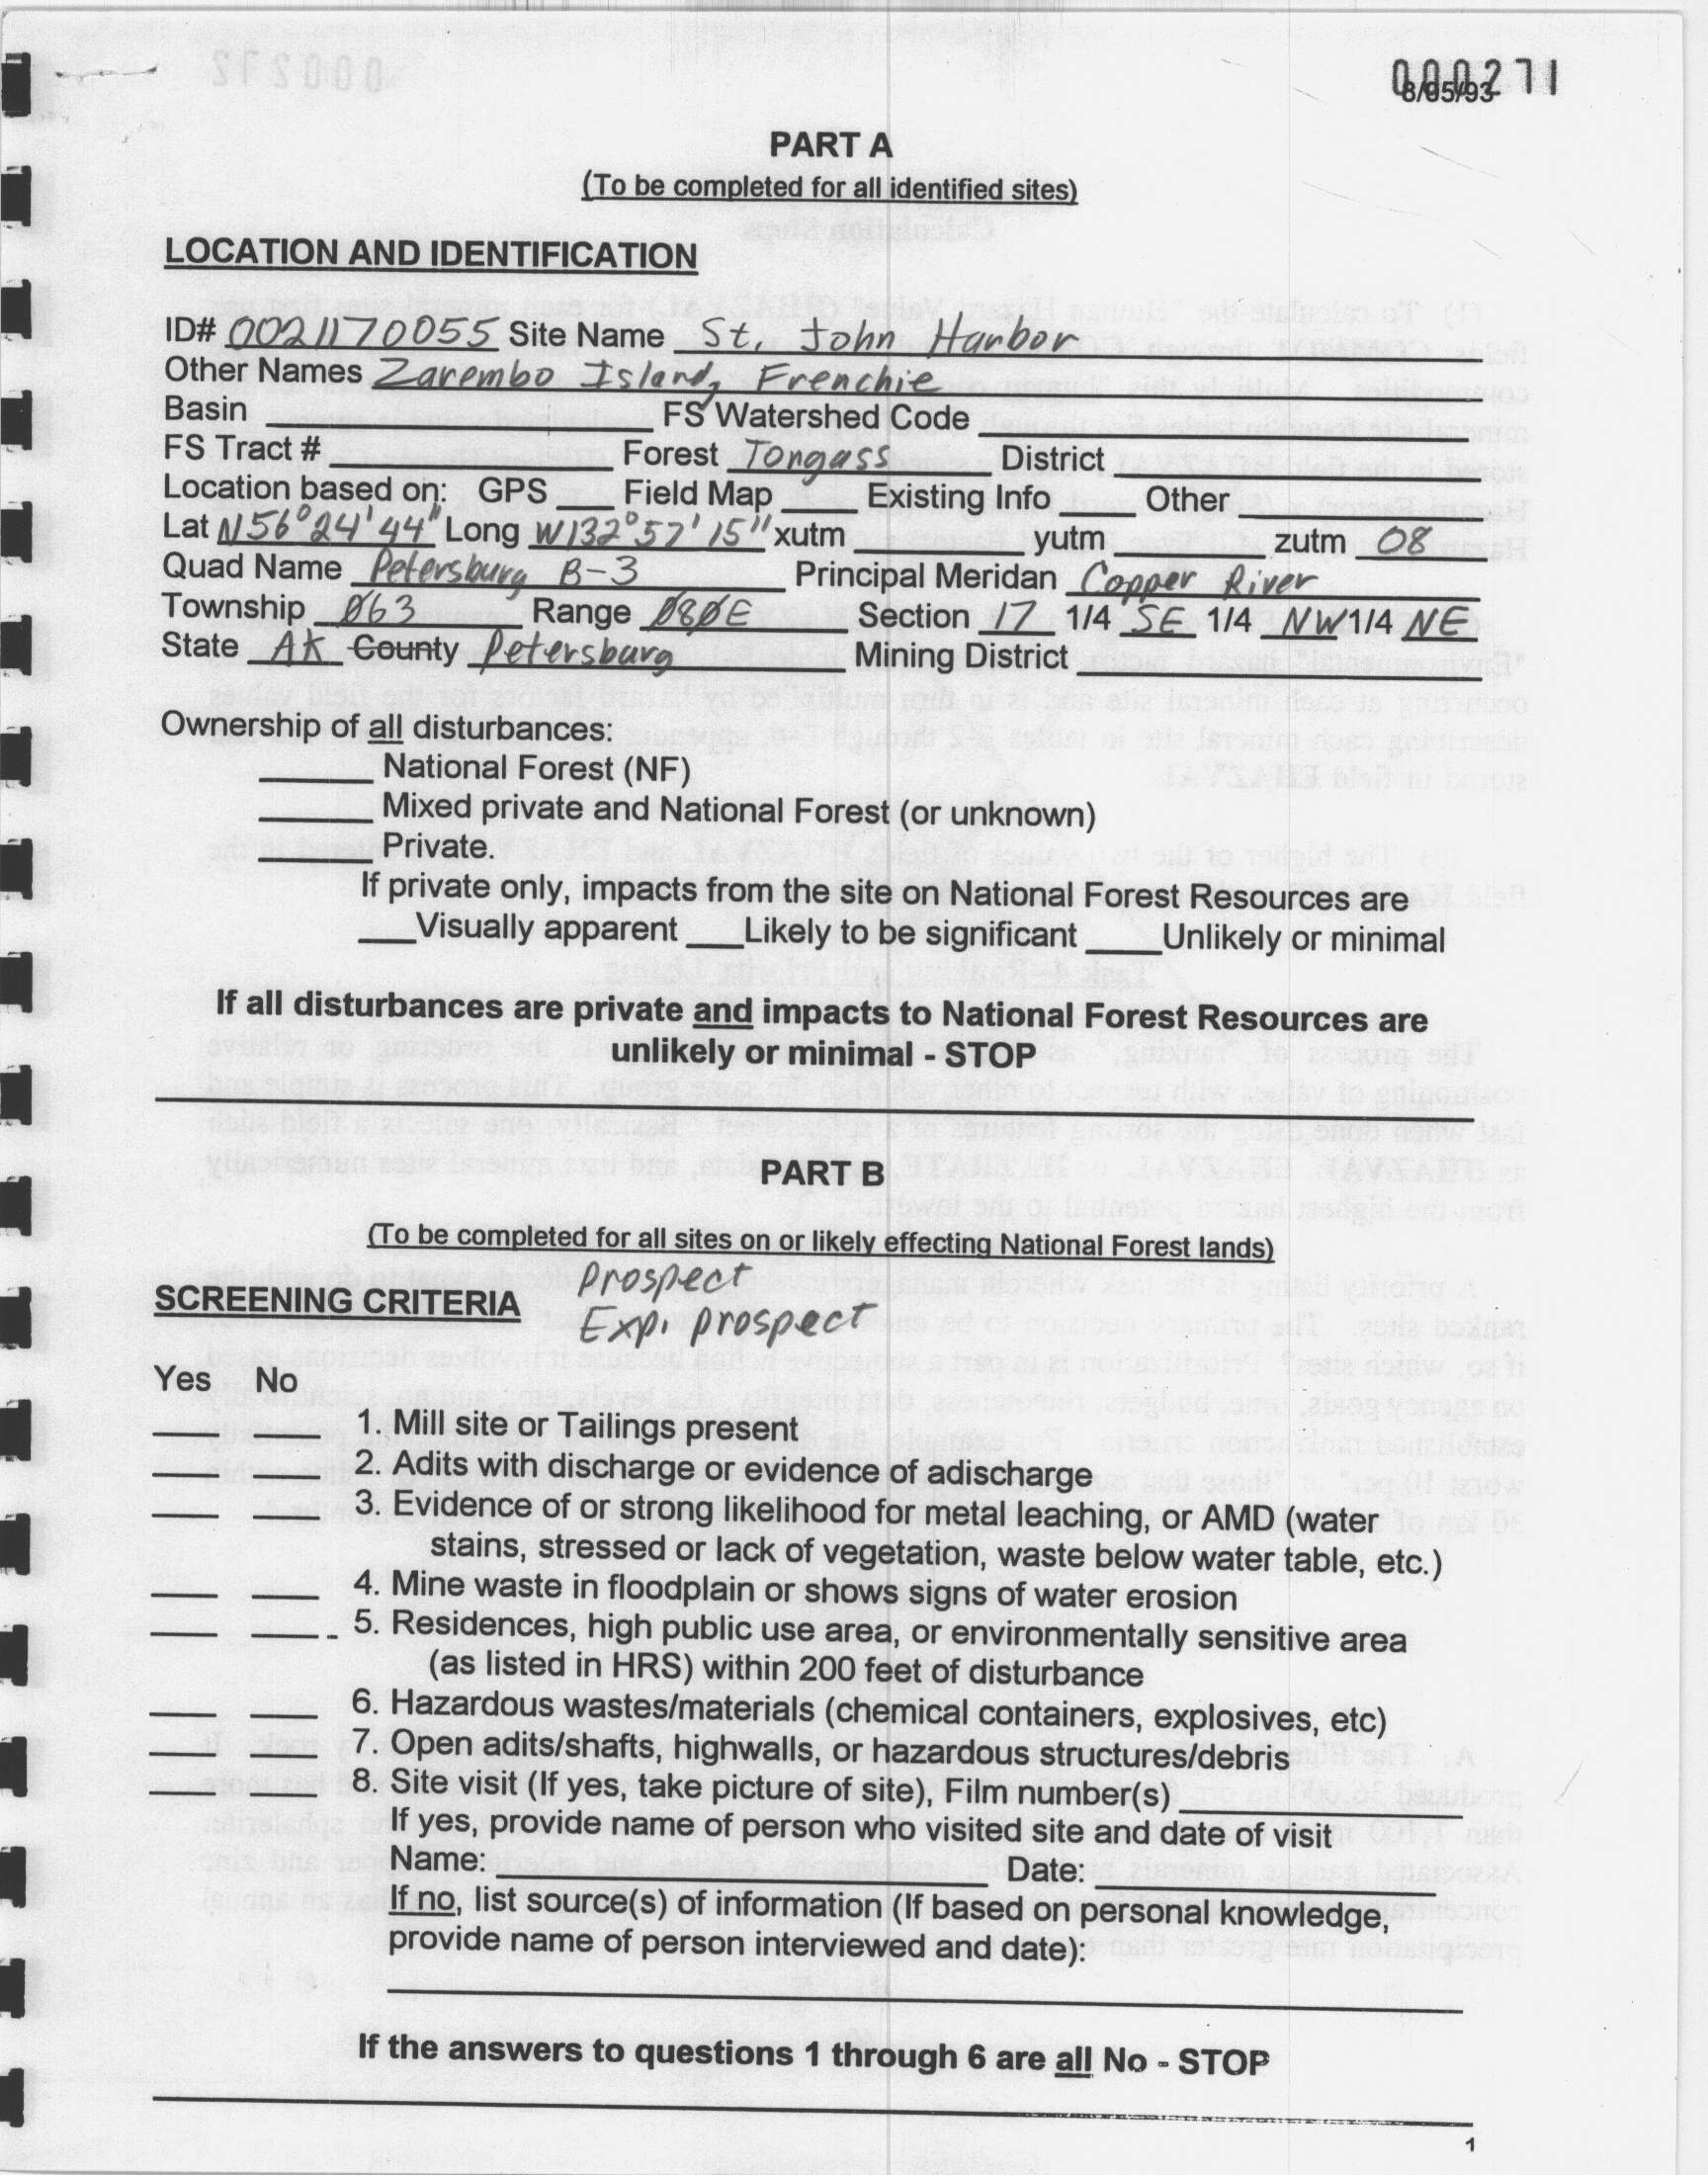 000271
8/05/93
PART A
(To be completed for all identified sites)
LOCATION AND IDENTIFICATION
ID# 0021170055 Site Name St. John Harbor
Other Names Zarembo Island, Frenchie
Basin ______ FS Watershed Code ______
FS Tract # ______ Forest Tongass District ______
Location based on: GPS ___ Field Map ___ Existing Info ___ Other ______
Lat N56°24'44" Long W132°57'15" xutm ______ yutm ______ zutm 08
Quad Name Petersburg B-3 Principal Meridan Copper River
Township 063 Range 080E Section 17 1/4 SE 1/4 NW 1/4 NE
State AK County Petersburg Mining District ______
Ownership of all disturbances:
______ National Forest (NF)
______ Mixed private and National Forest (or unknown)
______ Private.
If private only, impacts from the site on National Forest Resources are
___Visually apparent ___Likely to be significant ____Unlikely or minimal
If all disturbances are private and impacts to National Forest Resources are
unlikely or minimal - STOP
PART B
(To be completed for all sites on or likely effecting National Forest lands)
Prospect
SCREENING CRITERIA Exp. prospect
Yes No
___ ___ 1. Mill site or Tailings present
___ ___ 2. Adits with discharge or evidence of adischarge
___ ___ 3. Evidence of or strong likelihood for metal leaching, or AMD (water
stains, stressed or lack of vegetation, waste below water table, etc.)
___ ___ 4. Mine waste in floodplain or shows signs of water erosion
___ ___ 5. Residences, high public use area, or environmentally sensitive area
(as listed in HRS) within 200 feet of disturbance
___ ___ 6. Hazardous wastes/materials (chemical containers, explosives, etc)
___ ___ 7. Open adits/shafts, highwalls, or hazardous structures/debris
___ ___ 8. Site visit (If yes, take picture of site), Film number(s) ______
If yes, provide name of person who visited site and date of visit
Name: ______ Date: ______
If no, list source(s) of information (If based on personal knowledge,
provide name of person interviewed and date):
If the answers to questions 1 through 6 are all No - STOP
1